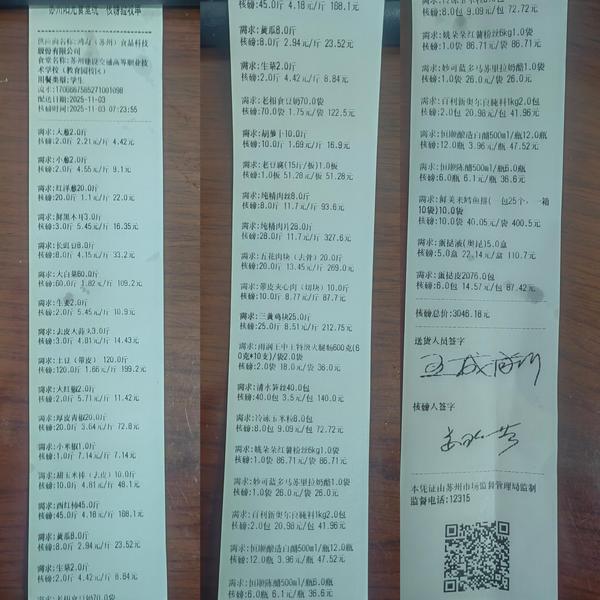 苏州阳光食堂 核磅验收单
供应商名称:鸿海(苏州)食品科技
股份有限公司
食堂名称:苏州建设交通高等职业技
术学校(教育园校区)
用餐类型:学生
配送日期:2025-11-03
核磅时间:2025-11-03 07:23:55
需求:大葱2.0斤
核磅:2.0斤 2.21元/斤 4.42元
需求:小葱2.0斤
核磅:2.0斤 4.55元/斤 9.1元
需求:红洋葱20.0斤
核磅:20.0斤 1.1元/斤 22.0元
需求:鲜黑木耳3.0斤
核磅:3.0斤 5.45元/斤 16.35元
需求:长豇豆8.0斤
核磅:8.0斤 4.15元/斤 33.2元
需求:大白菜60.0斤
核磅:60.0斤 1.82元/斤 109.2元
需求:生姜2.0斤
核磅:2.0斤 5.45元/斤 10.9元
需求:去皮大蒜3.0斤
核磅:3.0斤 4.81元/斤 14.43元
需求:土豆(带皮) 120.0斤
核磅:120.0斤 1.66元/斤 199.2元
需求:大红椒2.0斤
核磅:2.0斤 5.71元/斤 11.42元
需求:厚皮青椒20.0斤
核磅:20.0斤 3.64元/斤 72.8元
需求:小米椒1.0斤
核磅:1.0斤 7.14元/斤 7.14元
需求:甜玉米棒(去皮)10.0斤
核磅:10.0斤 4.81元/斤 48.1元
需求:西红柿45.0斤
核磅:45.0斤 4.18元/斤 188.1元
需求:黄瓜8.0斤
核磅:8.0斤 2.94元/斤 23.52元
需求:生菜2.0斤
核磅:2.0斤 4.42元/斤 8.84元
需求:老相食豆奶70.0袋
核磅:45.0斤 4.18元/斤 188.1元
需求:黄瓜8.0斤
核磅:8.0斤 2.94元/斤 23.52元
需求:生菜2.0斤
核磅:2.0斤 4.42元/斤 8.84元
需求:老相食豆奶70.0袋
核磅:70.0袋 1.75元/袋 122.5元
需求:胡萝卜10.0斤
核磅:10.0斤 1.69元/斤 16.9元
需求:老豆腐(15斤/板)1.0板
核磅:1.0板 51.28元/板 51.28元
需求:纯精肉丝8.0斤
核磅:8.0斤 11.7元/斤 93.6元
需求:纯精肉片28.0斤
核磅:28.0斤 11.7元/斤 327.6元
需求:五花肉块(去骨)20.0斤
核磅:20.0斤 13.45元/斤 269.0元
需求:带皮夹心肉(切块)10.0斤
核磅:10.0斤 8.77元/斤 87.7元
需求:三黄鸡块25.0斤
核磅:25.0斤 8.51元/斤 212.75元
需求:雨润王中王特级火腿肠600克(6
0克*10支)/袋2.0袋
核磅:2.0袋 18.0元/袋 36.0元
需求:清水笋丝40.0包
核磅:40.0包 3.5元/包 140.0元
需求:冷冻玉米粒8.0包
核磅:8.0包 9.09元/包 72.72元
需求:姚朵朵红薯粉丝6kg1.0袋
核磅:1.0袋 86.71元/袋 86.71元
需求:妙可蓝多马苏里拉奶酪1.0袋
核磅:1.0袋 26.0元/袋 26.0元
需求:百利新奥尔良腌料1kg2.0包
核磅:2.0包 20.98元/包 41.96元
需求:恒顺酿造白醋500ml/瓶12.0瓶
核磅:12.0瓶 3.96元/瓶 47.52元
需求:恒顺陈醋500ml/瓶6.0瓶
核磅:6.0瓶 6.1元/瓶 36.6元
需求:冷冻玉米粒8.0包
核磅:8.0包 9.09元/包 72.72元
需求:姚朵朵红薯粉丝6kg1.0袋
核磅:1.0袋 86.71元/袋 86.71元
需求:妙可蓝多马苏里拉奶酪1.0袋
核磅:1.0袋 26.0元/袋 26.0元
需求:百利新奥尔良腌料1kg2.0包
核磅:2.0包 20.98元/包 41.96元
需求:恒顺酿造白醋500ml/瓶12.0瓶
核磅:12.0瓶 3.96元/瓶 47.52元
需求:恒顺陈醋500ml/瓶6.0瓶
核磅:6.0瓶 6.1元/瓶 36.6元
需求:鲜美来鳕鱼排(一包25个,一箱
10袋)10.0袋
核磅:10.0袋 40.05元/袋 400.5元
需求:蛋挞液(奥昆)5.0盒
核磅:5.0盒 22.14元/盒 110.7元
需求:蛋挞皮2076.0包
核磅:6.0包 14.57元/包 87.42元
核磅总价:3046.18元
送货人员签字
核磅人签字
本凭证由苏州市场监督管理局监制
监督电话:12315